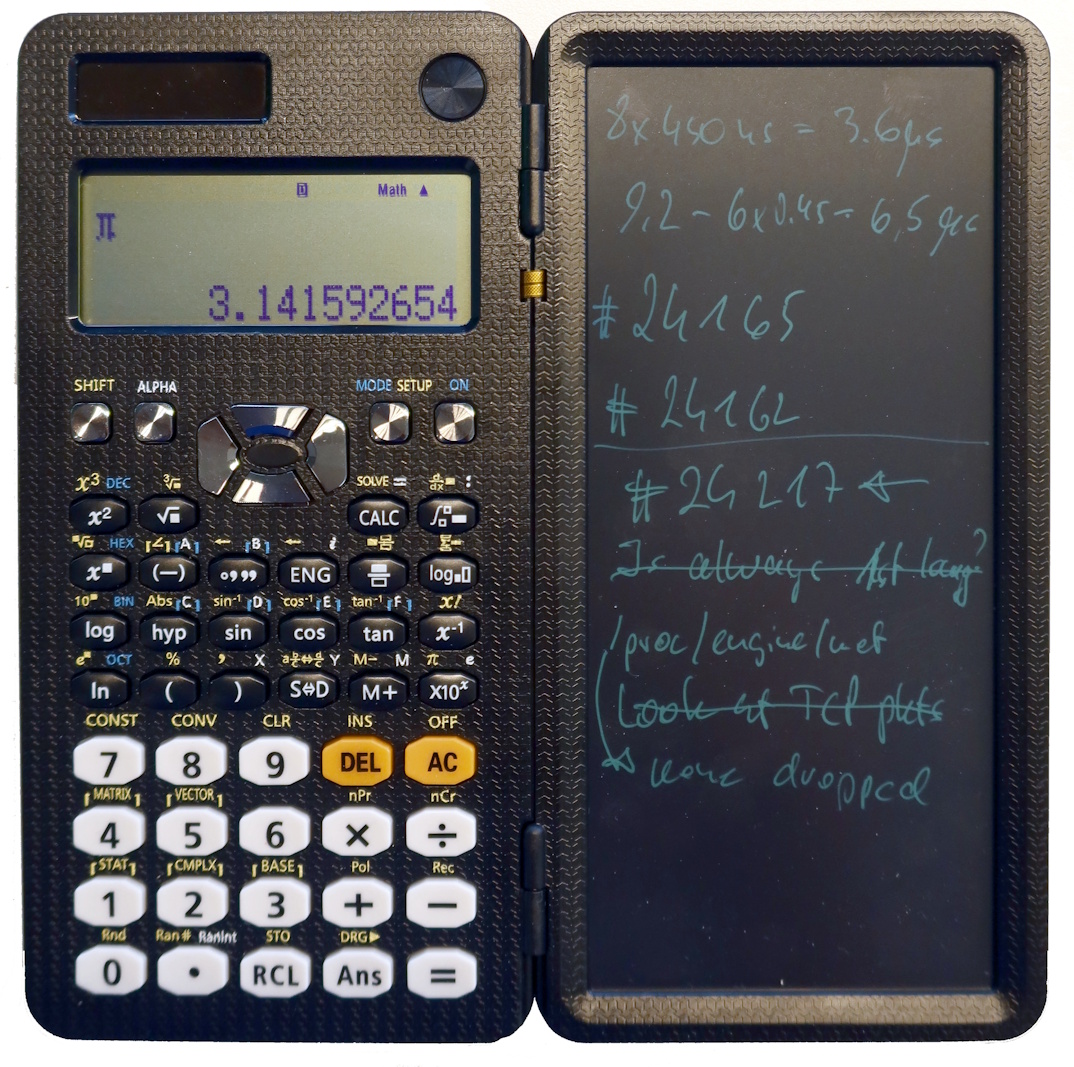 D Math ▲
π
3.141592654
SHIFT ALPHA MODE SETUP ON
x³ DEC ³√■ SOLVE = d/dx■ :
x² √■ CALC ∫■
■√□ HEX ∠ A ← B ← i
x■ (−) °,,, ENG log■□
10■ BIN Abs C sin⁻¹ D cos⁻¹ E tan⁻¹ F x!
log hyp sin cos tan x⁻¹
e■ OCT % , X Y M− M π e
ln ( ) S⇔D M+ X10ˣ
CONST CONV CLR INS OFF
7 8 9 DEL AC
MATRIX VECTOR nPr nCr
4 5 6 × ÷
STAT CMPLX BASE Pol Rec
1 2 3 + −
Rnd Ran# RanInt STO DRG▶
0 • RCL Ans =
8x450ns = 3.6µs
9,2 - 6x0.45 = 6,5 µs
#24165
#24162
#24217 ←
Is always 1st large?
/proc/engine/net
Look at TCP pkts
none dropped